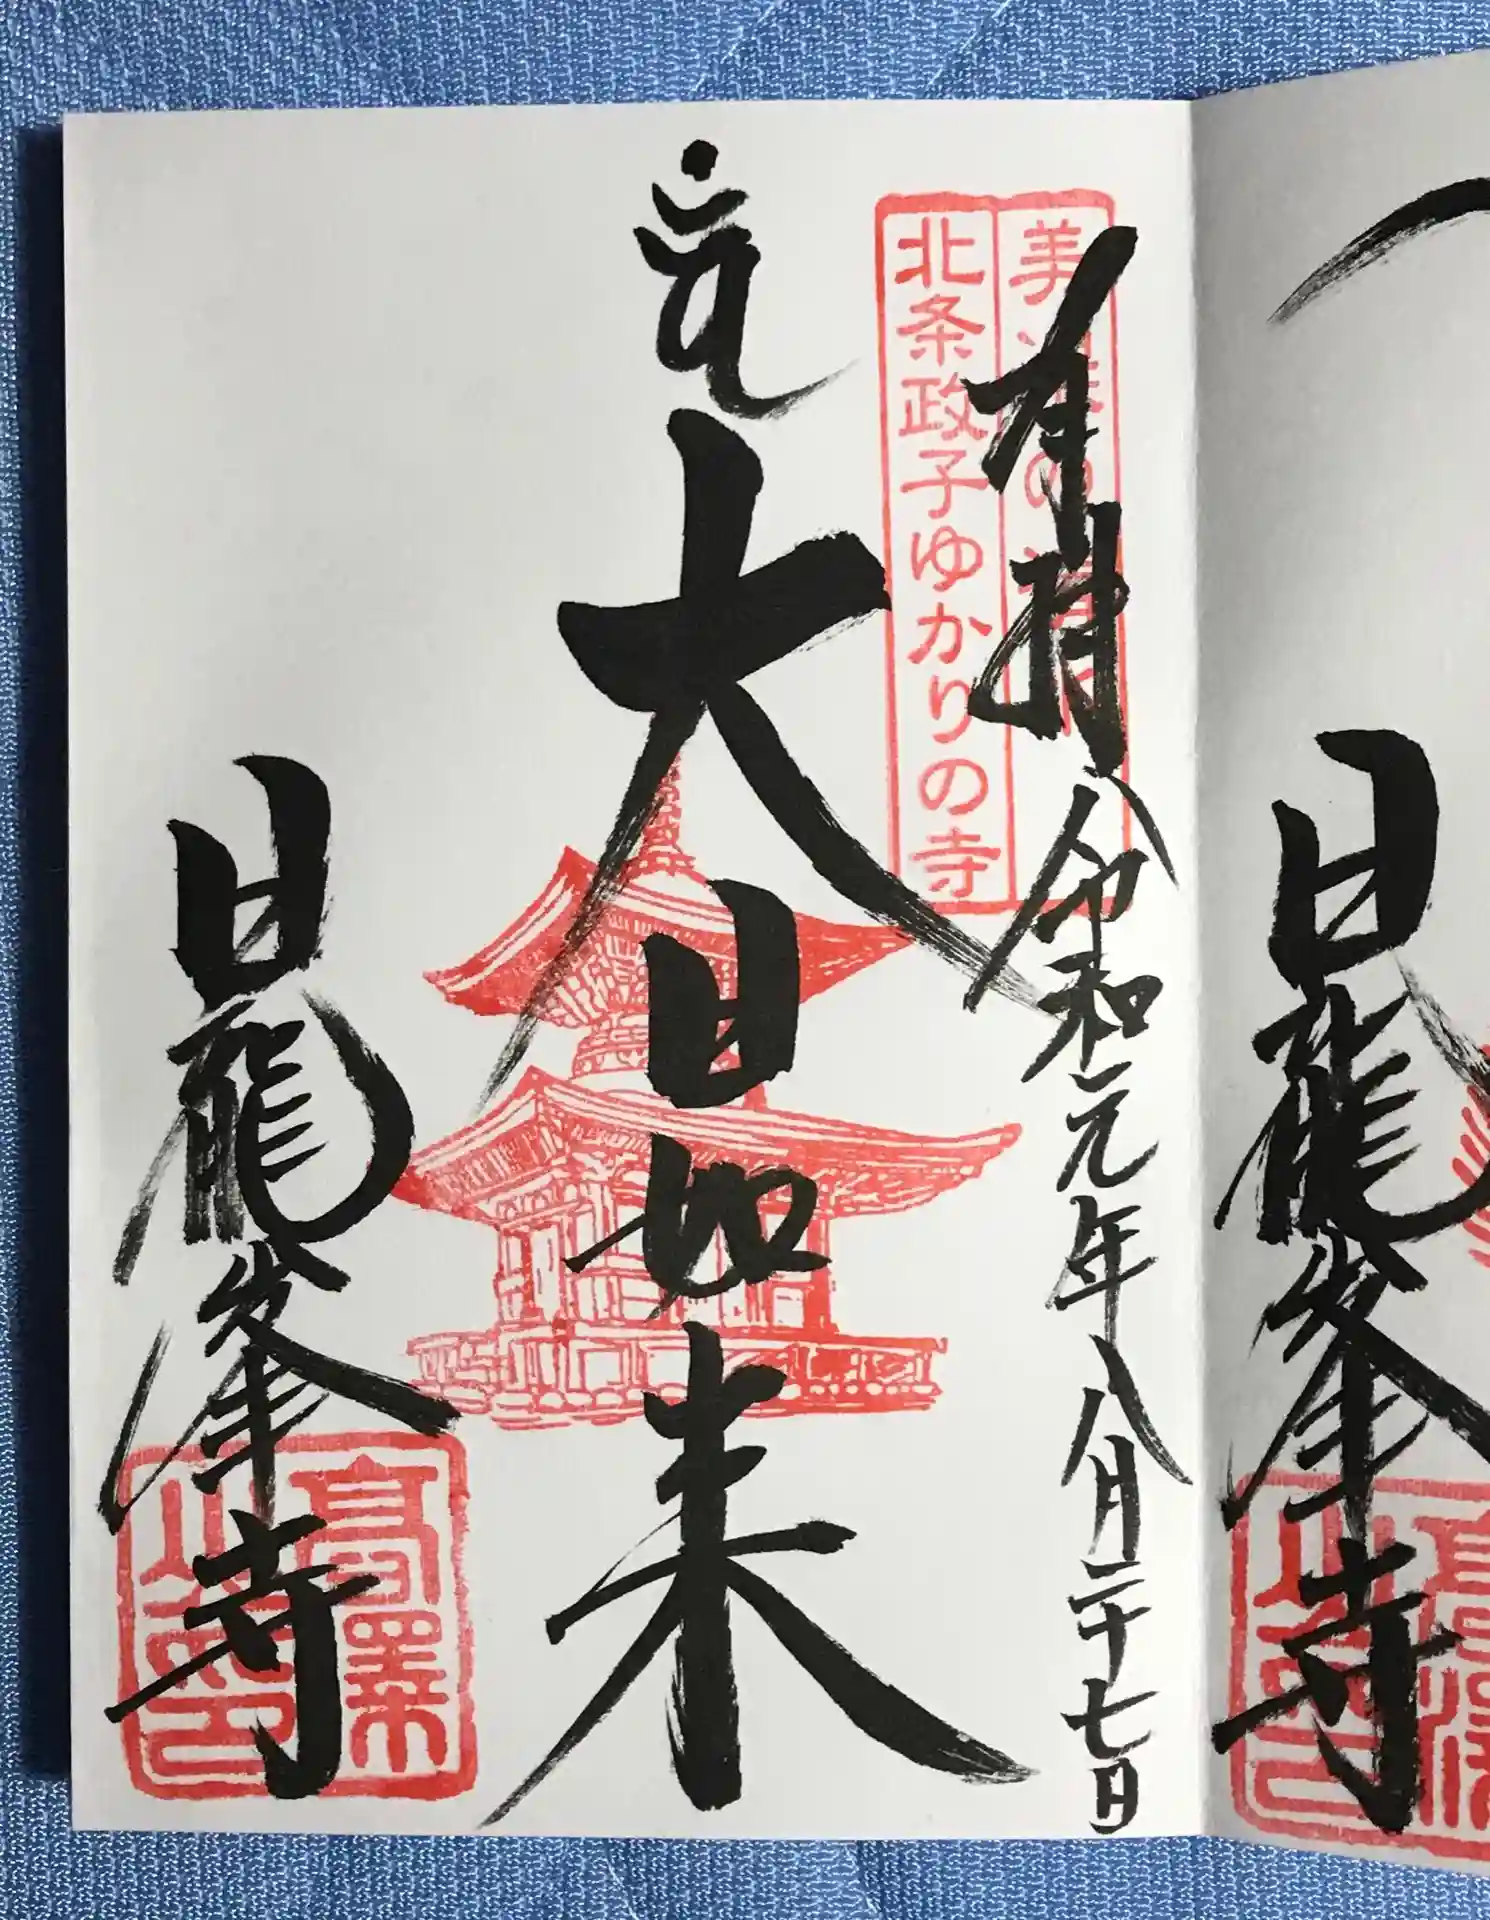 日龍峯寺
奉拝 令和元年八月二十七日
北条政子ゆかりの寺
大日如来
日龍峯寺